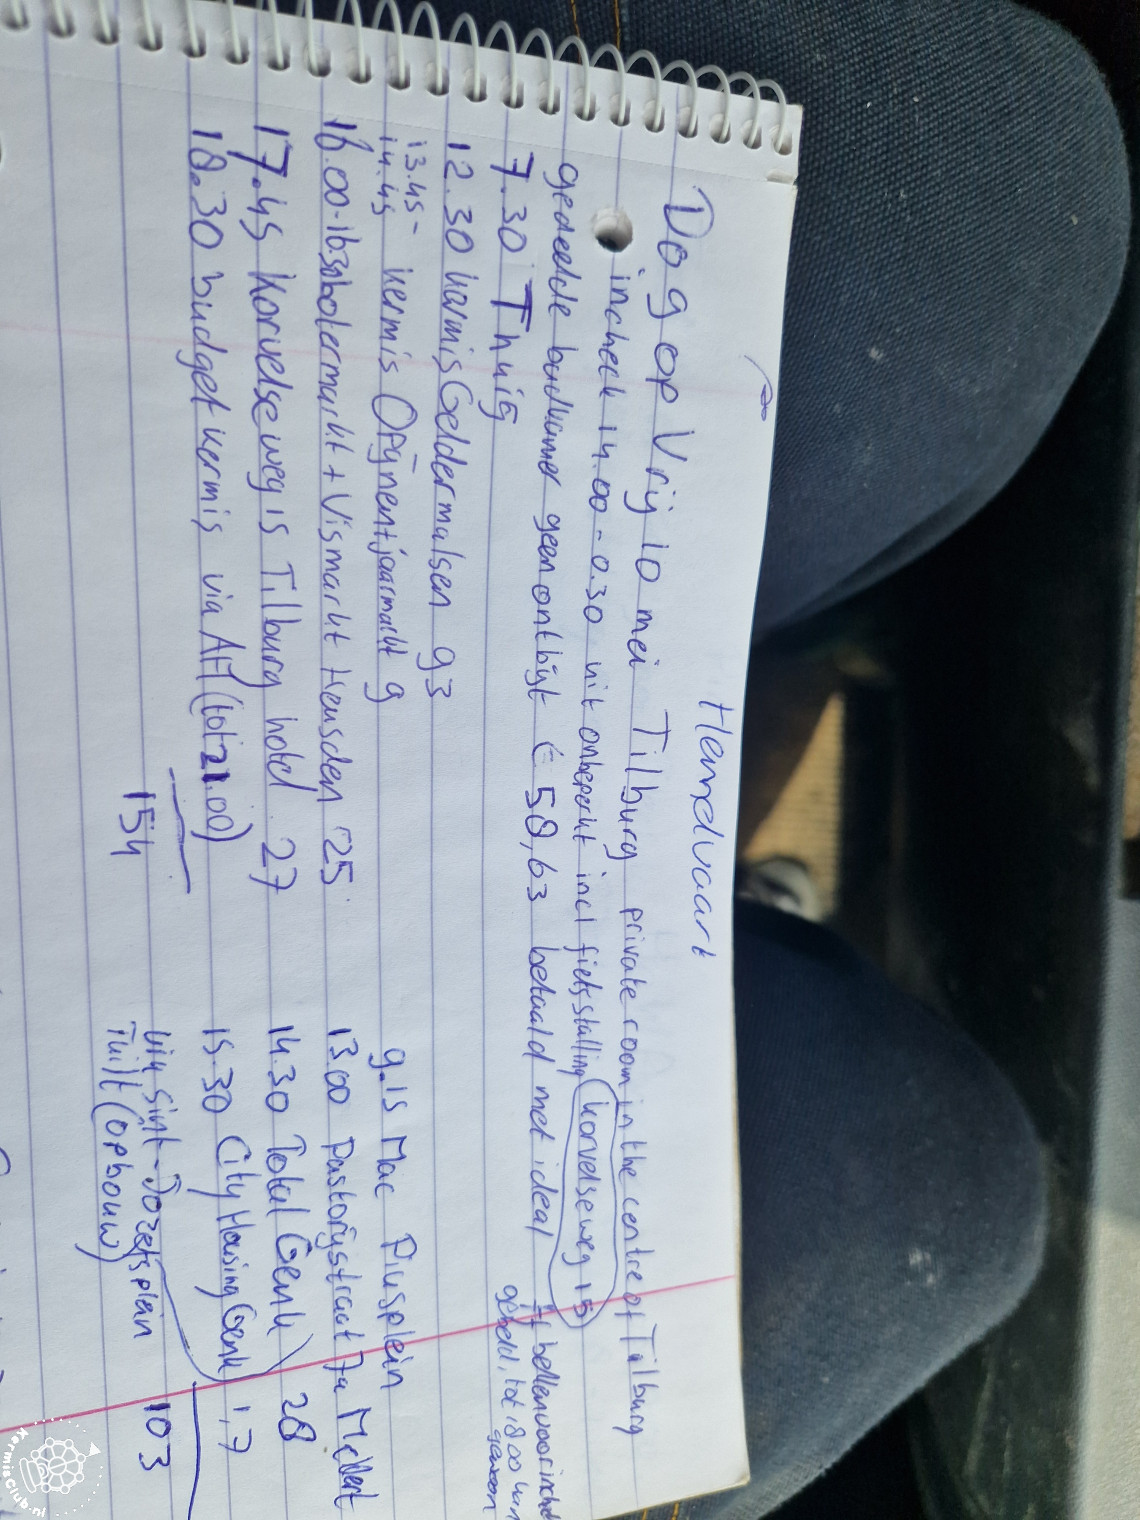 Hemelvaart
Dag op Vrij 10 mei Tilburg private room in the centre of Tilburg
incheck 14.00-0.30 uit onbeperkt incl fietsstalling Korvelseweg 15
gedeelde badkamer geen ontbijt € 58,63 betaald met ideal
bellen voor incheck
gebeld, tot 18.00 kan gewoon
7.30 Thuis
12.30 kermis Geldermalsen 93
13.45-
14.45 kermis Opijnen+jaarmarkt 9
16.00-16.30 botermarkt + Vismarkt Heusden 25
17.45 Korvelseweg 15 Tilburg hotel 27
18.30 budgetkermis via AH (tot 21.00)
154
9.15 Mac Piusplein
13.00 Pastorijstraat 7a Mellert
14.30 Total Genk 28
15.30 City Housing Genk 1,7
via Sint-Jozefsplein 103
Tuilt (opbouw)
KermisClub.nl